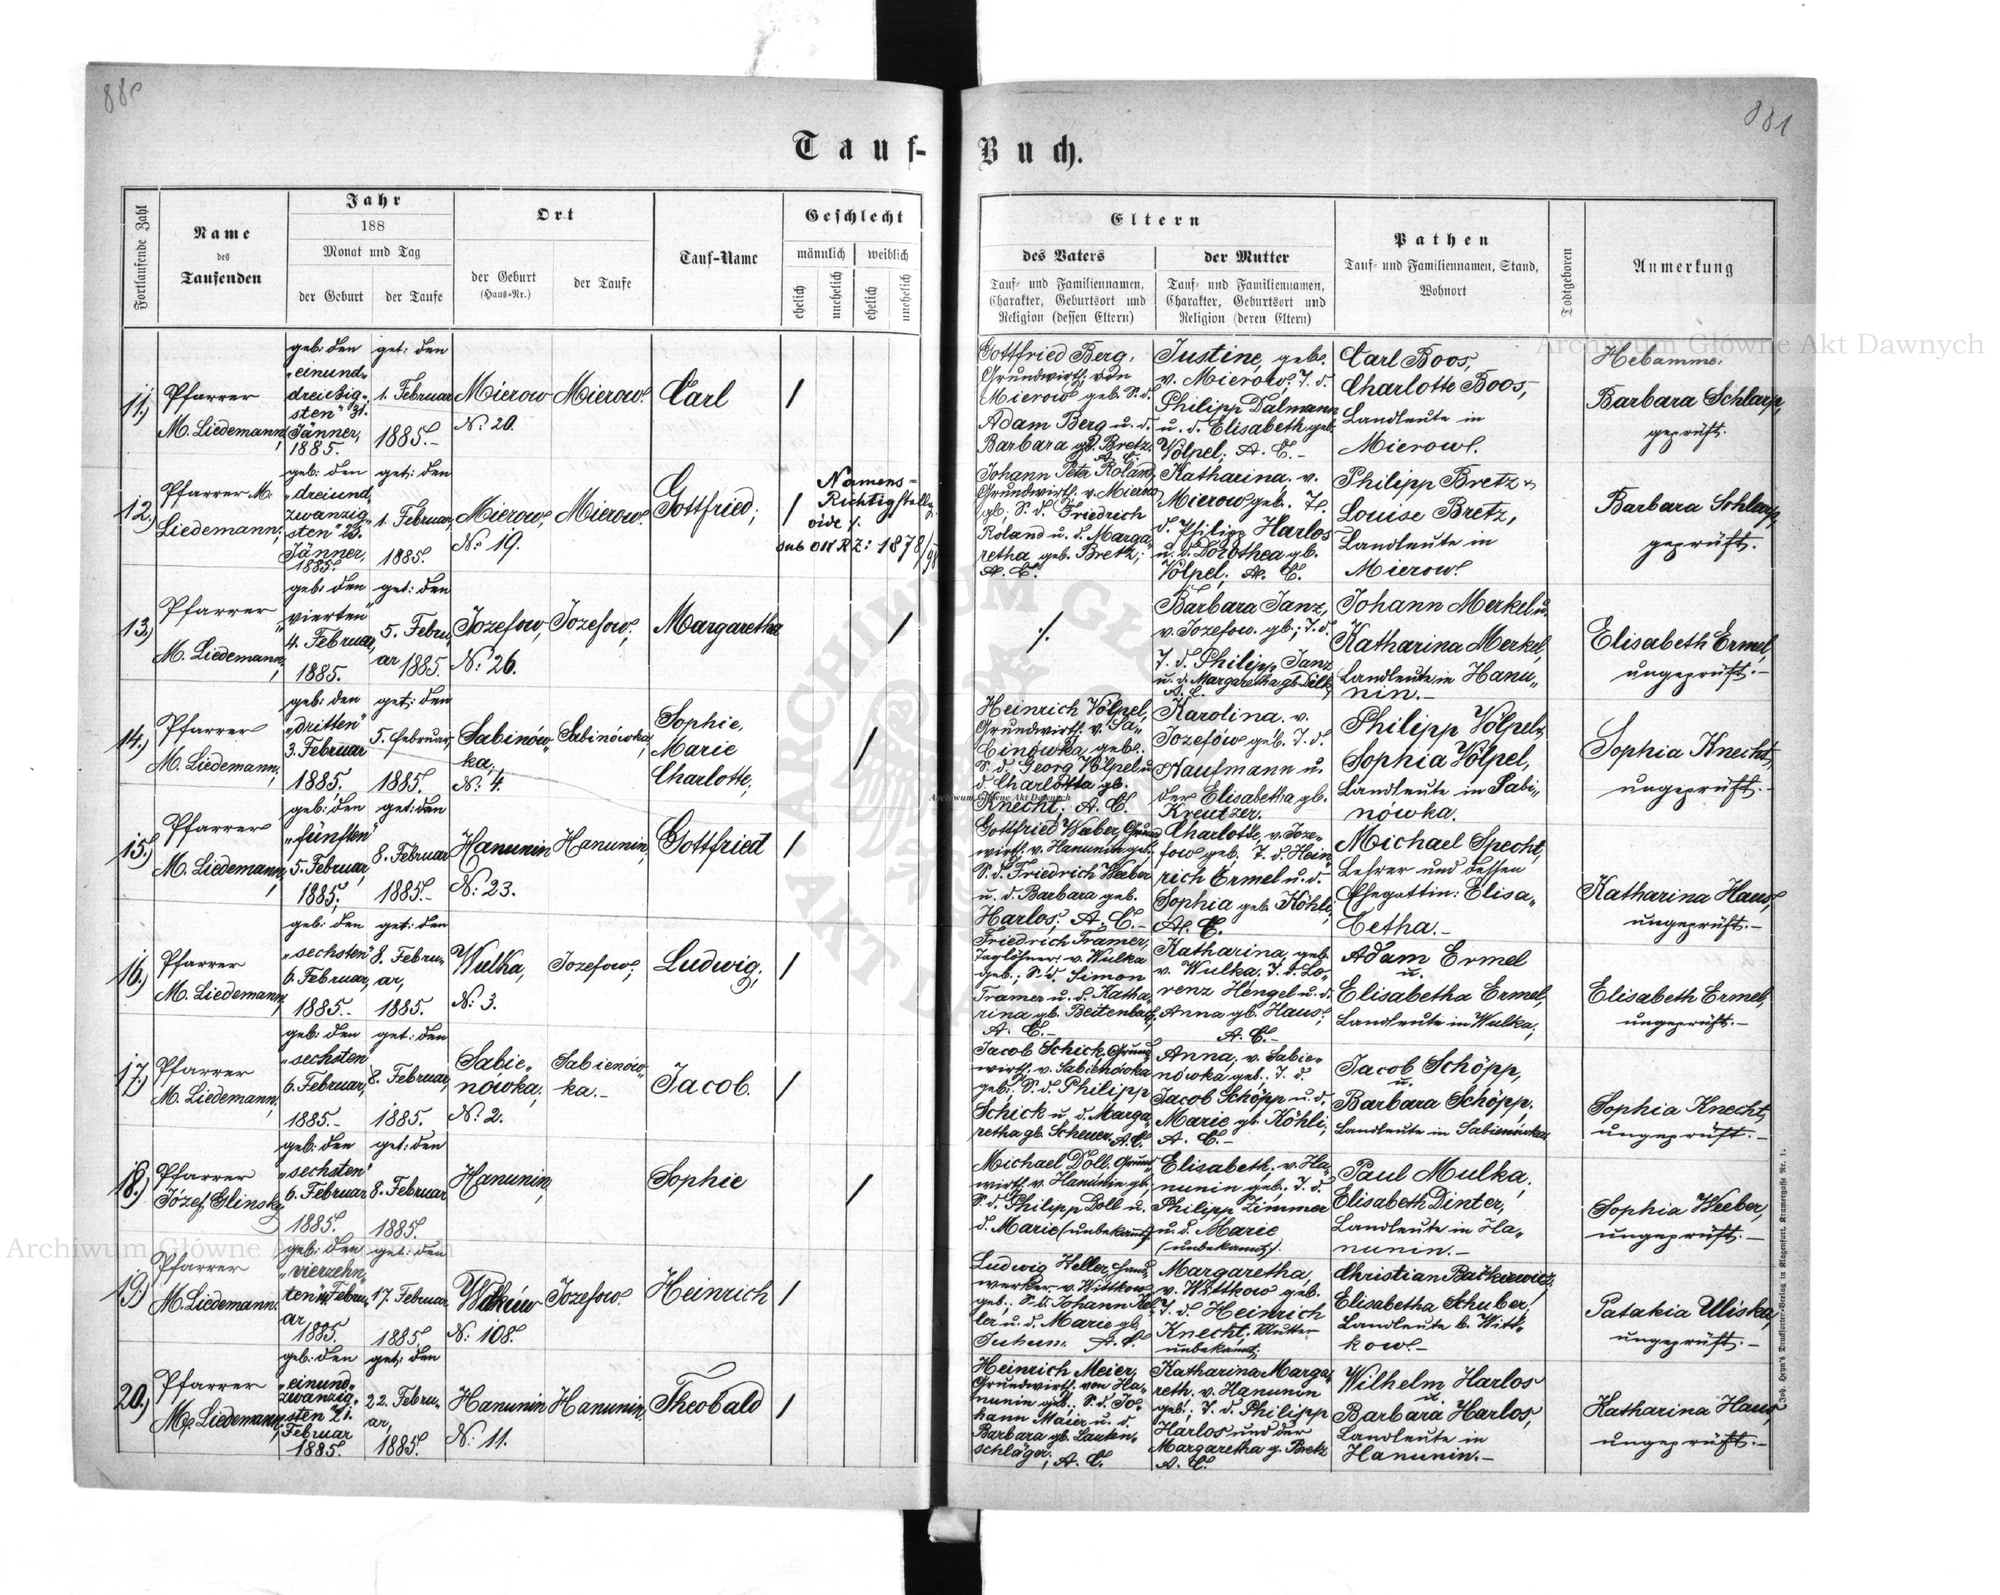 880
881
Tauf-
Buch.
Fortlaufende Zahl
Name
des
Taufenden
Jahr
188
Monat und Tag
der Geburt
der Taufe
Ort
der Geburt
(Haus-Nr.)
der Taufe
Tauf-Name
Geschlecht
männlich
weiblich
ehelich
unehelich
ehelich
unehelich
Eltern
des Vaters
Tauf- und Familiennamen,
Charakter, Geburtsort und
Religion (dessen Eltern)
der Mutter
Tauf- und Familiennamen,
Charakter, Geburtsort und
Religion (deren Eltern)
Pathen
Tauf- und Familiennamen, Stand,
Wohnort
Todtgeboren
Anmerkung
11.)
Pfarrer
M. Liedemann;
geb: den
"einund"
dreißig"
sten" 31.
Jänner,
1885.
get: den
1. Februar
1885.-
Mierow
N: 20.
Mierow.
Carl
/
Gottfried Berg,
Grundwirth, von
Mierow geb. S. d.
Adam Berg u. d.
Barbara gb. Bretz.
A. C.
Justine, geb.
v. Mierow, T. d.
Philipp Dalmann
u. d. Elisabeth geb.
Völpel; A. C.-
Carl Boos,
Charlotte Boos,
Landleute in
Mierow.
Hebamme:
Barbara Schlarp,
geprüft.
12.)
Pfarrer M.
Liedemann;
geb: den
"dreiund"
zwanzig"
sten" 23.
Jänner,
1885.
get: den
1. Februar
1885.
Mierow,
N: 19.
Mierow.
Gottfried;
/
Namens-
Richtigstellg.
vide /.
sub ON RZ: 1878/98
Johann Peter Roland,
Grundwirth v. Mierow
gb, S. d. Friedrich
Roland u. d. Marga"
retha geb. Bretz;
A. C.
Katharina, v.
Mierow geb. T.
d. Philipp Harlos
u. d. Dorothea gb.
Völpel; A. C.
Philipp Bretz
Louise Bretz,
Landleute in
Mierow.
Barbara Schlarp,
geprüft.
13.)
Pfarrer
M. Liedemann;
geb: den
vierten"
4. Februar,
1885.
get: den
5. Febru"
ar 1885.
Jozefow,
N: 26.
Jozefow.
Margaretha
/
./.
Barbara Janz,
v. Jozefow. gb; T. d.
T. d. Philipp Janz
u. d. Margaretha gb
A. C.
Johann Merkel u.
Katharina Merkel,
Landleute in Hanu"
nin.-
Elisabeth Ermel,
ungeprüft.-
14.)
Pfarrer
M. Liedemann;
geb: den
"dritten"
3. Februar
1885.
get: den
5. Februar,
1885.
Sabinów"
ka;
N: 4.
Sabinówka,
Sophie,
Marie
Charlotte;
/
Heinrich Völpel,
Grundwirth v. Sa"
binówka, geb.
S. d. Georg Völpel u.
d. Charlotta gb.
Knecht; A. C.
Karolina. v.
Jozefów geb. T. d.
Kaufmann u.
der Elisabetha gb.
Kreutzer.
Philipp Völpel,
Sophia Völpel,
Landleute in Sabi"
nówka.
Sophia Knecht,
ungeprüft.-
15.)
Pfarrer
M. Liedemann,
geb: den
"fünften"
5. Februar,
1885;
get: den
8. Februar
1885.-
Hanunin
N: 23.
Hanunin,
Gottfried
/
Gottfried Weber, Grund
wirth v. Hanunin geb,
S. d. Friedrich Weber
u. d. Barbara geb.
Harlos; A. C.-
Charlotte, v. Joze"
fow geb. T. d. Hein"
rich Ermel u. d.
Sophia geb. Köhli,
A. C.
Michael Specht,
Lehrer und dessen
Ehegattin: Elisa"
betha.-
Katharina Haus,
ungeprüft.-
16.)
Pfarrer
M. Liedemann;
geb: den
"sechsten"
6. Februar,
1885.-
get: den
8. Febru"
ar,
1885.
Wulka,
N: 3.
Jozefow;
Ludwig;
/
Friedrich Tramer,
Taglöhner v. Wulka
geb.; S. d. Simon
Tramer u. d. Katha"
rina gb. Beitenbach,
A. C.-
Katharina, geb
v. Wulka; T. d. Lo"
renz Hengel u. d.
Anna gb. Haus;
A. C.-
Adam Ermel
u.
Elisabetha Ermel,
Landleute in Wulka;
Elisabeth Ermel,
ungeprüft.-
17.)
Pfarrer
M. Liedemann;
geb: den
"sechsten"
6. Februar,
1885.-
get: den
8. Februar,
1885.
Sabie"
nówka;
N: 2.
Sabienów"
ka.-
Jacob.
/
Jacob Schick, Grund
wirth v. Sabienówka
geb; S. d. Philipp
Schick u. d. Marga"
retha gb. Scheuer. A. C.
Anna; v. Sabie"
nówka geb; T. d.
Jacob Schöpp u. d.
Marie gb. Köhli;
A. C.-
Jacob Schöpp,
u.
Barbara Schöpp.
Landleute in Sabienówka
Sophia Knecht,
ungeprüft.-
18.)
Pfarrer
Józef Glinsky
geb: den
"sechsten"
6. Februar
1885.
get: den
8. Februar
1885.
Hanunin,
Sophie
/
Michael Doll, Grund
wirth v. Hanunin gb,
S. d. Philipp Doll u.
d. Marie (unbekannt)
Elisabeth; v. Ha"
nunin geb; T. d.
Philipp Zimmer
u. d. Marie
(unbekannt).
Paul Mulka,
Elisabeth Dinter,
Landleute in Ha"
nunin.-
Sophia Weber,
ungeprüft.-
19.)
Pfarrer
M. Liedemann.
geb: den
"vierzehn"
ten 14. Febru"
ar,
1885.
get: den
17. Februar
1885.
N: 108.
Jozefow.
Heinrich
/
Ludwig Keller, Hand"
werker v. Wittkow
geb; S. d. Johann Kel"
ler u. d. Marie gb.
A. C.
Margaretha,
v. Wittkow geb.
T. d. Heinrich
Knecht; Mutter
unbekannt;
Christian
Elisabetha Schuber;
Landleute b. Witt"
kow.-
Patakia Uliska,
ungeprüft.-
20.)
Pfarrer
M. Liedemann,
geb: den
"einund"
zwanzig"
sten" 21.
Februar
1885.
get: den
22. Febru"
ar,
1885.
Hanunin
N: 11.
Hanunin,
Theobald
/
Heinrich Meier,
Grundwirth von Ha"
nunin geb; S. d. Jo"
hann Maier u. d.
Barbara gb. Lauten"
schläger; A. C.
Katharina Marga"
reth. v. Hanunin
geb; T. d. Philipp
Harlos und der
Margaretha g. Bretz
A. C.
Wilhelm Harlos
u.
Barbara Harlos,
Landleute in
Hanunin.-
Katharina Haus,
ungeprüft.-
Joh. Heyn's Drucksorten-Verlag in Klagenfurt, Kramergasse Nr. 1.
Archiwum Główne Akt Dawnych
Archiwum Główne Akt Dawnych
Archiwum Główne Akt Dawnych